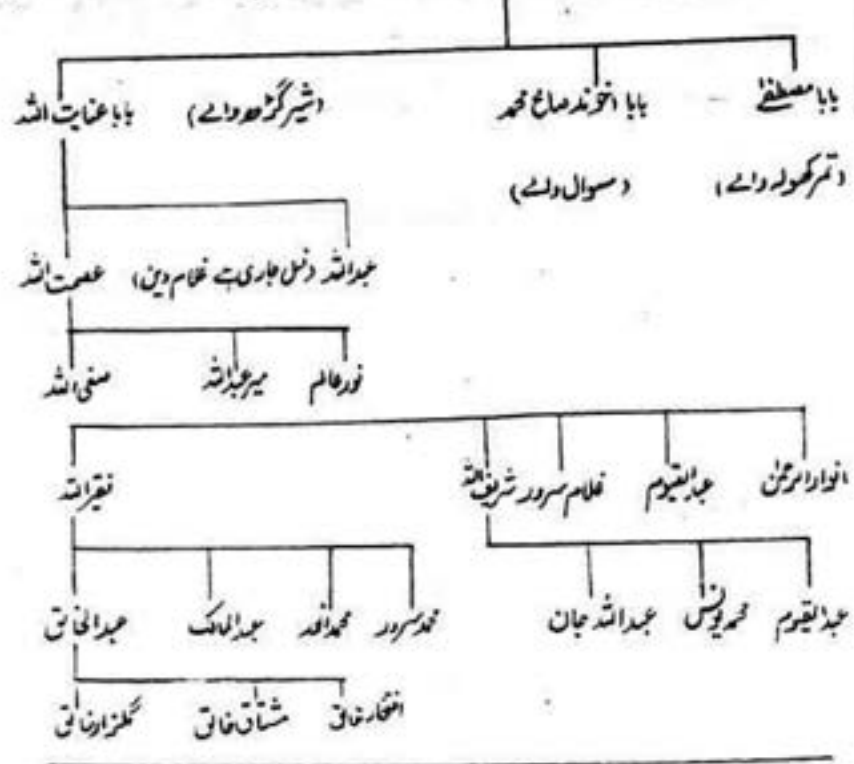 بابا مصطفےٰ بابا اخوند صالح محمد (شیر گڑھ والے) بابا عنایت اللہ
(تمر کھولہ والے) (سوال والے)
عبداللہ (نسل جاری ہے غلام دین) عصمت اللہ
نور عالم میر عبداللہ صفی اللہ
انوار الرحمٰن عبدالقیوم غلام سرور شریف اللہ فقیر اللہ
عبدالقیوم محمد یونس عبداللہ جان محمد سرور محمد احمد عبدالمالک عبدالخالق
افتخار خالق مشتاق خالق گلزار خالق